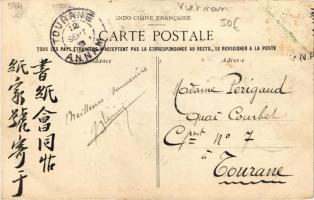 Vietnam
50(
INDO-CHINE FRANÇAISE
TOURANE
12
SEPT
ANNAM
CARTE POSTALE
TOUS LES PAYS ÉTRANGERS N'ACCEPTENT PAS LA CORRESPONDANCE AU RECTO, SE RENSEIGNER A LA POSTE
Adresse
Meilleurs souvenirs
Madame Périgaud
Quai Courbet
N° 7
à
Tourane
書紙會同帖
紙家號寄于